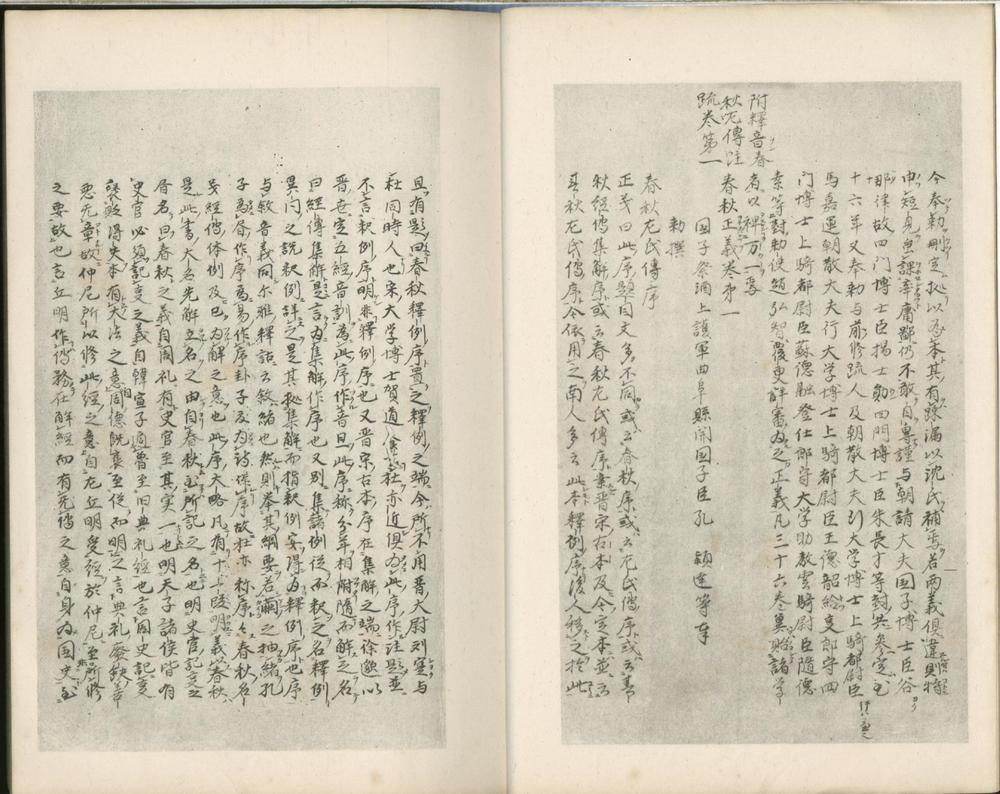 今奉勅刪定拠以為本其有疎漏以沈氏補焉若両義俱違則特
申短見虽課率庸鄙仍不敢自専謹与朝請大夫国子博士臣谷
那律故四门博士臣楊士勛四門博士臣朱長才等對共参定至
十六年又奉勅与前修疏人及朝散大夫行大学博士上騎都尉臣
馬嘉運朝散大夫行大学博士上騎都尉臣王德韶給事郎守四
门博士上騎都尉臣蘇德融登仕郎守大学助教雲騎尉臣隨德
素等對勅使趙弘智覆更詳審為之正義凡三十六巻冀貽諸学
者以裨万一焉
附釋音春
秋左傳註
疏巻第一
春秋正義巻第一
国子祭酒上護軍曲阜縣開国子臣孔 穎達等奉
勅撰
春秋左氏傳序
正義曰此序題目文多不同或云春秋序或云左氏傳序或云春
秋経傳集解序或云春秋左氏傳序案晋宋古本及今定本並云
春秋左氏傳序今依用之南人多云此本釋例序後人移之於此
且有題曰春秋釋例序置之釋例之端今所不用晋大尉刘寔与
杜同時人也宋大学博士賀道養去杜亦近俱為此序作注題並
不言釈例序明非釋例序也又晋宋古本序在集解之端徐邈以
晋世定五経音訓為此序作音且此序称分年相附隨而解之名
曰経傳集解是言為集解作序也又別集諸例従而釈之名釋例
異同之説釈例詳之是其拠集解而指釈例安得為釋例序也序
与叙音義同尔雅釋詁云叙緒也然則挙其綱要若繭之抽緒孔
子為書作序為易作序卦子夏為詩作序故杜亦称序々春秋名
義経傳体例及已為解之意也此序大略凡有十一段明義以春秋
是此書大名先解立名之由自春秋至所記之名也明史官記事之
書名曰春秋之義自周礼有史官至其実一也明天子諸侯皆有
史官必須記事之義自韓宣子適魯至旧典礼経也言周史記事
褒貶得失本有大法之意自周德既衰至従而明之言典礼廃缺善
悪无章故仲尼所以修此経之意自左丘明受経於仲尼至所修
之要故也言丘明作傳務在解経而有无傳之意自身為国史至